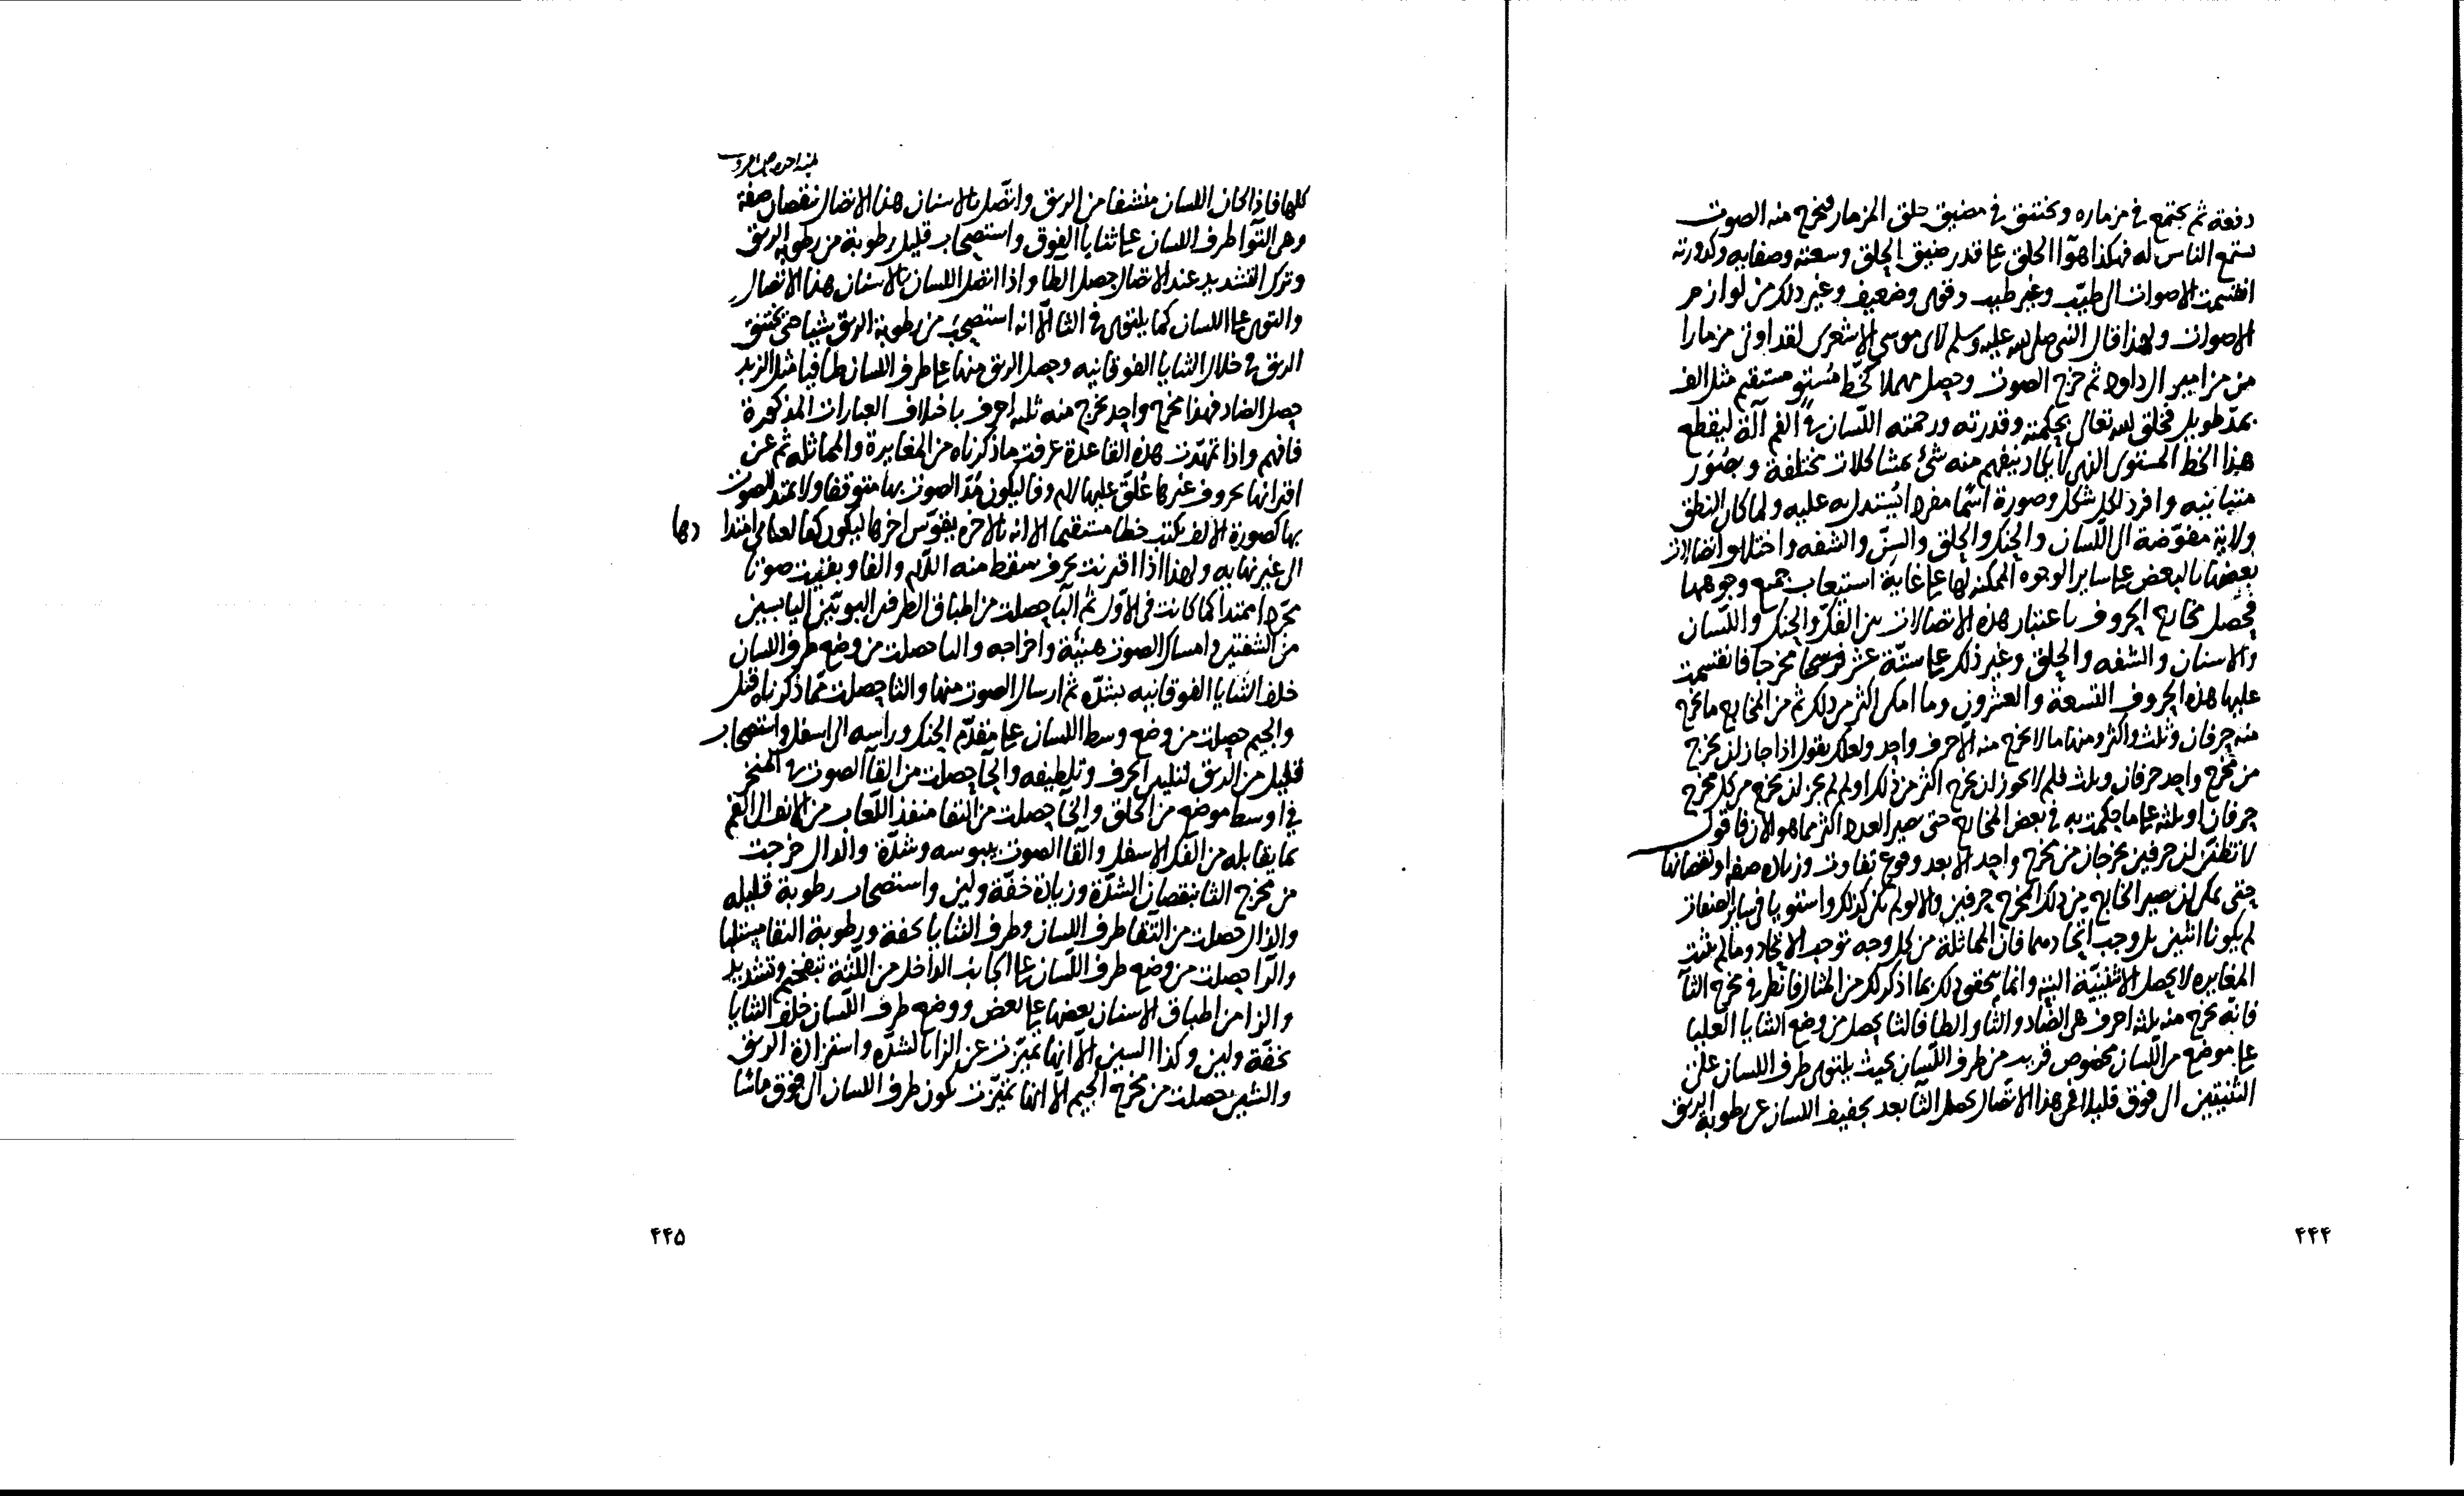 دفعة ثم يجتمع في مزماره ويختنق في مضيق حلق المزمار فيخرج منه الصوت
يستمع الناس له فهكذا هوآ الحلق على قدر ضيق الحلق وسعته وصفايه وكدورته
انقسمت الاصوات الى طيّب وغير طيب وقوى وضعيف وغير ذلك من لوازم
الاصوات ولهذا قال النبي صلى الله عليه وسلم لابى موسى الاشعرى لقد اوتى مزمارا
من مزامير ال داود ثم خرج الصوت وحصل مهملا كخّط مُستوٍ مستقيم مثل الف
بمدّ طويل فخلق الله تعالى بحكمته وقدرته ورحمته اللّسان في الفم آلة ليقطع
هذا الخط المستوى الذى لا يكاد يتفهم منه شئ بمشاكلات مختلفة وصُوَر
متباينه وافرد لكل شكل وصورة اسمًا مفردا يُستدل به عليه ولما كان النطق
ولاية مفوّضة الى اللّسان والحنك والحلق والسنّ والشفه واختلاف اتصالات
بعضها بالبعض على ساير الوجوه الممكنه لها على غاية استيعاب جميع وجوهها
فحصل مخارج الحروف باعتبار هذه الاتصالات بين الفكّ والحنك واللّسان
والاسنان والشفه والحلق وغير ذلك على ستّة عشر مخرجا فانقسمت
عليها هذه الحروف التسعة والعشرون وما امكن اكثر من ذلك ثم من المخارج ما يخرج
منه حرفان وثلث واكثر ومنها ما لا يخرج منه الا حرف واحد ولعلك يقول اذا جاز ان يخرج
من مخرج واحد حرفان وثلث فلم لا يجوز ان يخرج اكثر من ذلك او لم لم يجز ان يخرج من كل مخرج
حرفان او ثلثه على ما حكمت به في بعض المخارج حتى يصير العدد اكثر مما هو الان فاقول
لا تظنّن ان حرفين يخرجان من مخرج واحد الا بعد وقوع تفاوت وزياده صفه او نقصانها
حتى يمكن ان يصير الخارج من ذلك المخرج حرفين والا لو لم يكن كذلك واستويا في ساير الصفات
لم يكونا اثنين بل وجب اتّحادهما فانّ المماثلة من كل وجه توجب الاتحاد وما لم يثبت
المغايره لا يحصل الاثنينيّة البته وانما يتحقق ذلك بما اذكر لك من المثال فانظر في مخرج الثآ
فانّه يخرج منه ثلثه احرف هى الضاد والثا والظا فالثا يحصل من وضع الثنايا العليا
على موضع من اللّسان مخصوص قريب من طرف اللّسان بحيث يلتوى طرف اللسان على
الثنيتين الى فوق قليلا فمن هذا الاتصال يحصل الثآ بعد تجفيف اللسان عن رطوبة الريق
۴۴۴
كلها فاذا كان اللسان منشفا من الريق واتّصل بالاسنان هذا الاتصال بنقصان صفة
وهى التوآ طرف اللسان على ثنايا الفوق واستصحاب قليل رطوبة من رطوبة الريق
وترك التشديد عند الاتصال حصل الظا واذا اتصل اللسان بالاسنان هذا الاتصال
والتوى على اللسان كما يلتوى في الثا الّا انه استصحب من رطوبة الريق شيا حتى يختنق
الريق في خلال الثنايا الفوقانيه وحصل الريق منها على طرف اللسان طافيا مثل الزبد
حصل الضاد فهذا مخرج واحد يخرج منه ثلثه احرف باختلاف العبارات المذكورة
فافهم واذا تمهّدت هذه القاعدة عرفت ما ذكرناه من المغايرة والمماثله ثم عن
اقترانها بحروف غيرها عُلّق عليها لام وفا ليكون مَدّ الصوت بها متوقفا ولا يمتد الصوت
بها كصورة الالف يكتب خطا مستقيما الا انه بالاخره يقوّس اخرها ليكون كفا لها عن امتدا (دها
الى غير نهايه ولهذا اذا اقترنت بحرف سقط منه اللّام والفا وبقيت صوتا
مجّردا ممتدا كما كانت في الاوّل ثم البآ حصلت من اطباق الطرفين اليابسين
من الشفتين وامساك الصوت هنيئة واخراجه والتا حصلت من وضع طرف اللسان
خلف الثنايا الفوقانيه بشدّه ثم ارسال الصوت منها والثا حصلت ممّا ذكرناه قبل
والجيم حصلت من وضع وسط اللسان على مقدّم الحنك وراسه الى اسفل واستصحاب
قليل من الريق لتليين الحرف وتلطيفه والحآ حصلت من القآ الصوت في المنخر
في اوسط موضع من الحلق والخآ حصلت من التقا منفذ اللّعاب من الانف الى الفم
بما يقابله من الفك الاسفل والقآ الصوت بيبوسه وشدّة والدال خرجت
من مخرج التا بنقصان الشدّة وزيادة خفّة ولين واستصحاب رطوبة قليله
والذال حصلت من التقا طرف اللسان وطرف الثنايا بخفه ورطوبة
والرّا حصلت من وضع طرف اللسان على الجانب الداخل من اللّثة بتفخيم وتشديد
والزا من اطباق الاسنان بعضها على بعض ووضع طرف اللسان خلف الثنايا
بخفّة ولين وكذا السين الّا انها تميّزت عن الزا بالشدّه واستزادة الريق
والشين حصلت من مخرج الجيم الّا انها تميّزت بكون طرف اللسان الى فوق ماسّا
۴۴۵